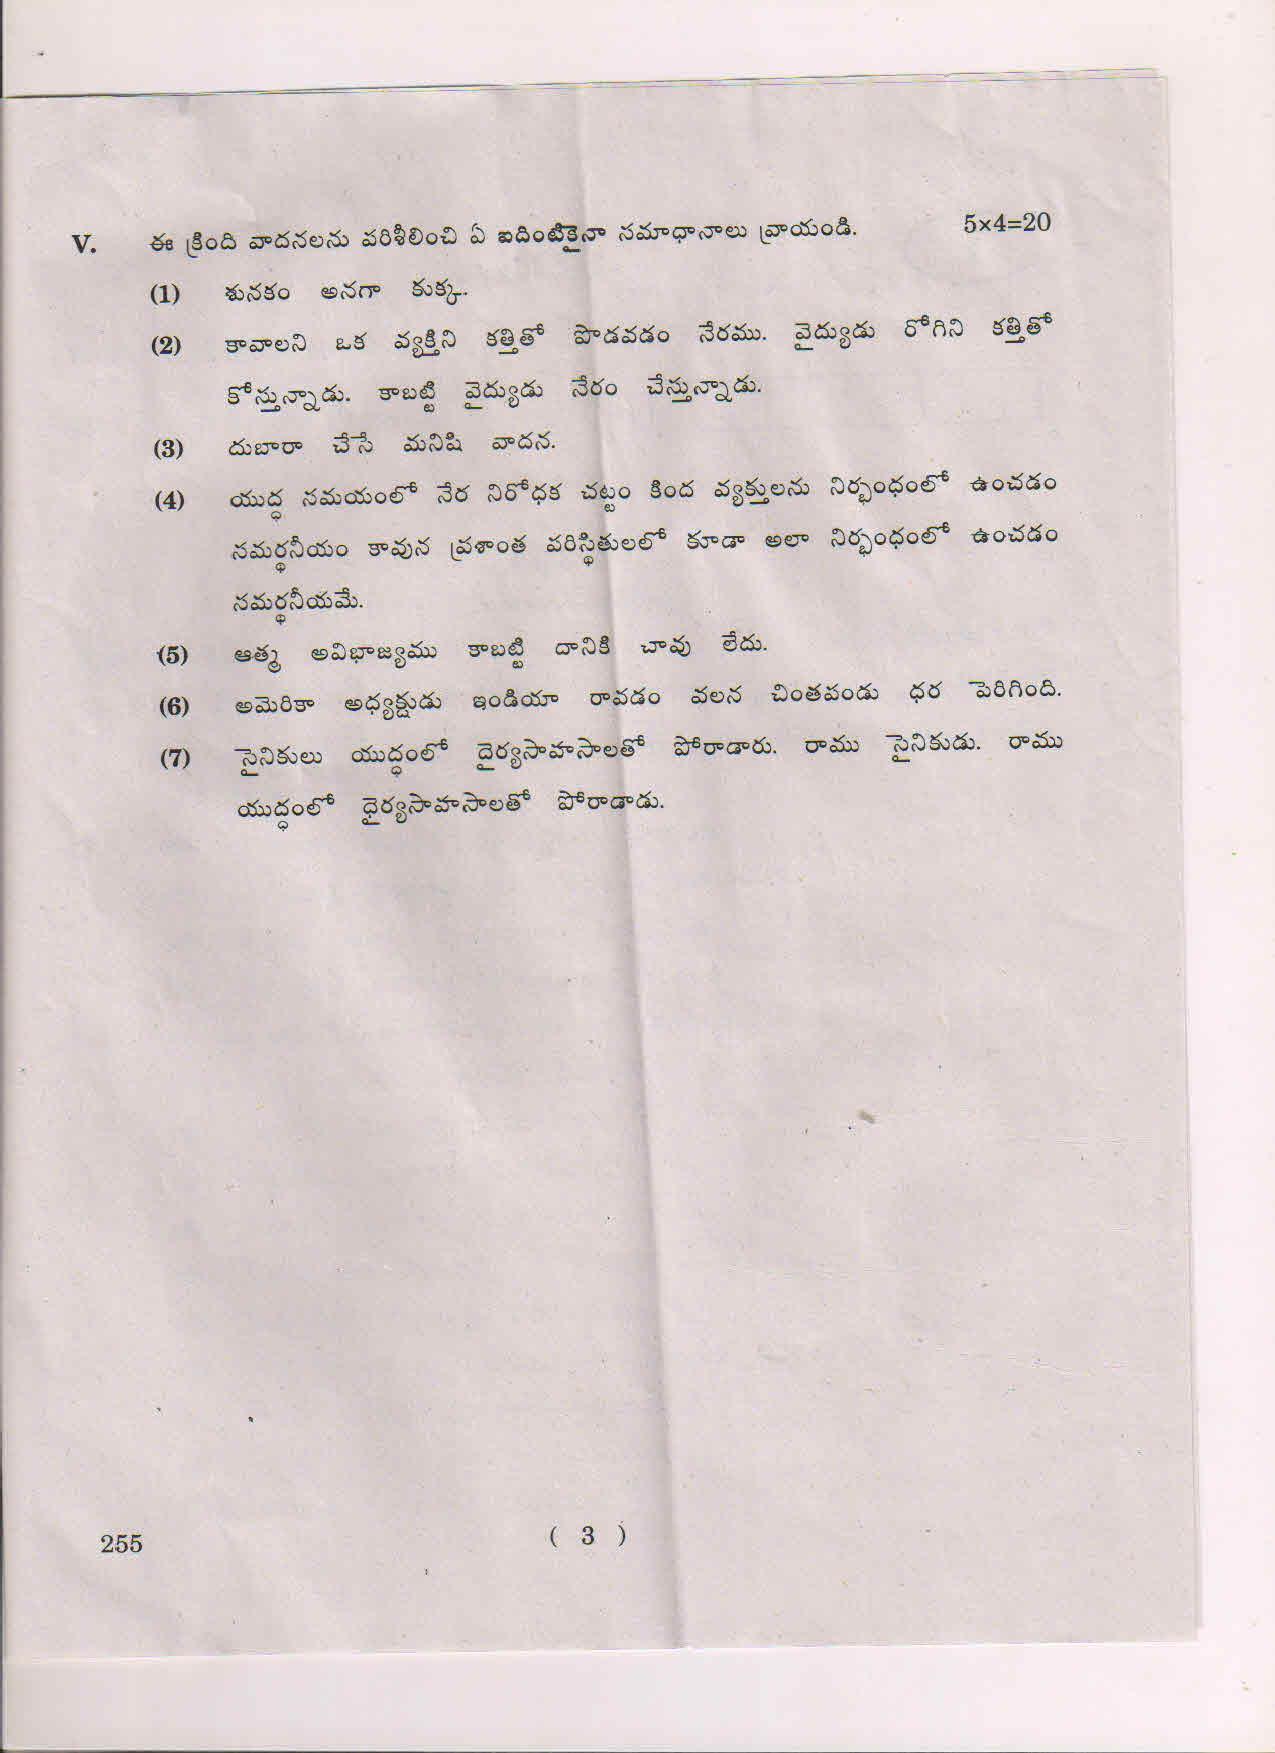 V. ఈ క్రింది వాదనలను పరిశీలించి ఏ ఐదింటికైనా సమాధానాలు వ్రాయండి. 5×4=20
(1) శునకం అనగా కుక్క.
(2) కావాలని ఒక వ్యక్తిని కత్తితో పొడవడం నేరము. వైద్యుడు రోగిని కత్తితో
కోస్తున్నాడు. కాబట్టి వైద్యుడు నేరం చేస్తున్నాడు.
(3) దుబారా చేసే మనిషి వాదన.
(4) యుద్ధ సమయంలో నేర నిరోధక చట్టం కింద వ్యక్తులను నిర్భంధంలో ఉంచడం
సమర్థనీయం కావున ప్రశాంత పరిస్థితులలో కూడా అలా నిర్భంధంలో ఉంచడం
సమర్థనీయమే.
(5) ఆత్మ అవిభాజ్యము కాబట్టి దానికి చావు లేదు.
(6) అమెరికా అధ్యక్షుడు ఇండియా రావడం వలన చింతపండు ధర పెరిగింది.
(7) సైనికులు యుద్ధంలో ధైర్యసాహసాలతో పోరాడారు. రాము సైనికుడు. రాము
యుద్ధంలో ధైర్యసాహసాలతో పోరాడాడు.
255 ( 3 )